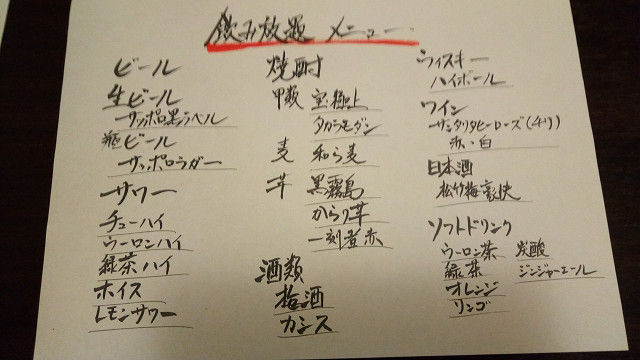 飲み放題 メニュー
ビール
生ビール
サッポロ黒ラベル
瓶ビール
サッポロラガー
サワー
チューハイ
ウーロンハイ
緑茶ハイ
ホイス
レモンサワー
焼酎
甲類 宝極上
タカラモダン
麦 和ら麦
芋 黒霧島
からり芋
一刻者赤
酒類
梅酒
カシス
ウィスキー
ハイボール
ワイン
サンタリタヒーローズ(チリ)
赤・白
日本酒
松竹梅豪快
ソフトドリンク
ウーロン茶 炭酸
緑茶 ジンジャーエール
オレンジ
リンゴ